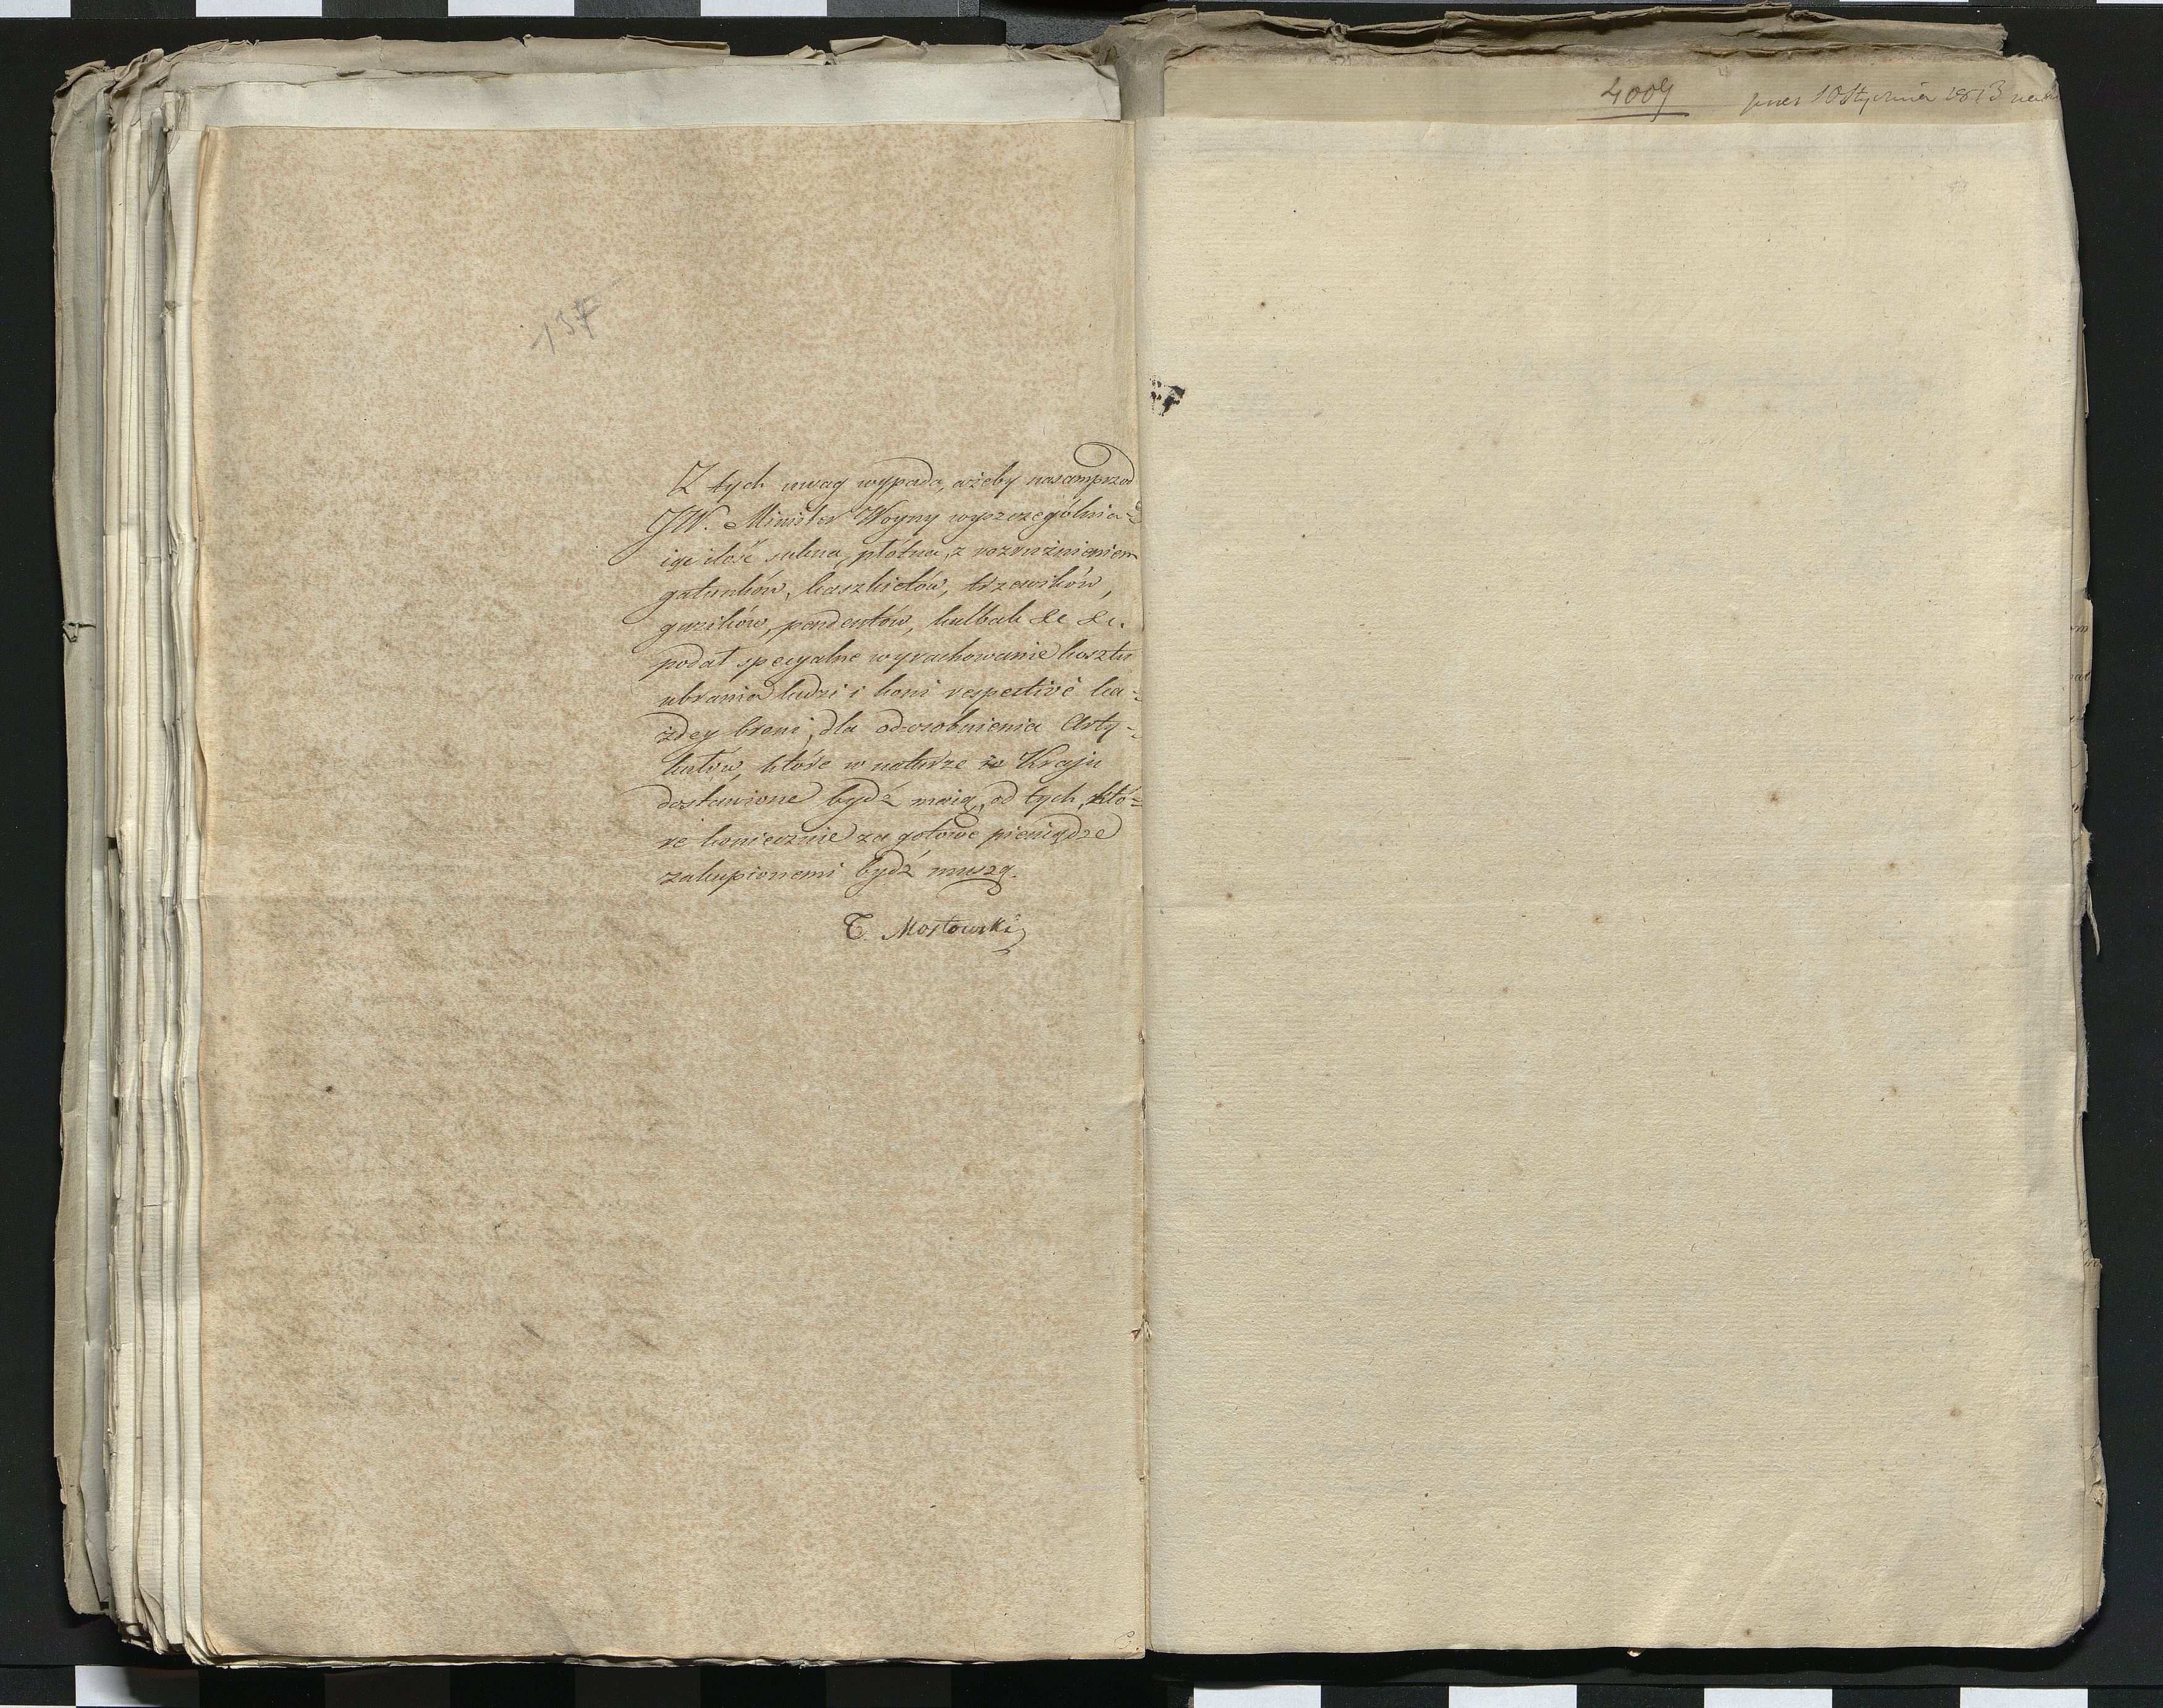 137
Z tych uwag wypada, ażeby nasamprzod
JW. Minister Woyny wyszczególnia=
iąc ilość sukna, płótna, z rozróżnieniem
gatunków, kaszkietów, trzewików,
guzików, pendentów, kulbak &c &c.
podał specyalne wyrachowanie kosztu
ubrania ludzi i koni respectivè ka=
żdey broni, dla odosobnienia Arty=
kułów, które w naturze w Kraju
dostawione bydź maią, od tych, któ=
re koniecznie za gotowe pieniądze
zakupionemi bydź muszą.
T. Mostowski
4009
10 Stycznia 1813